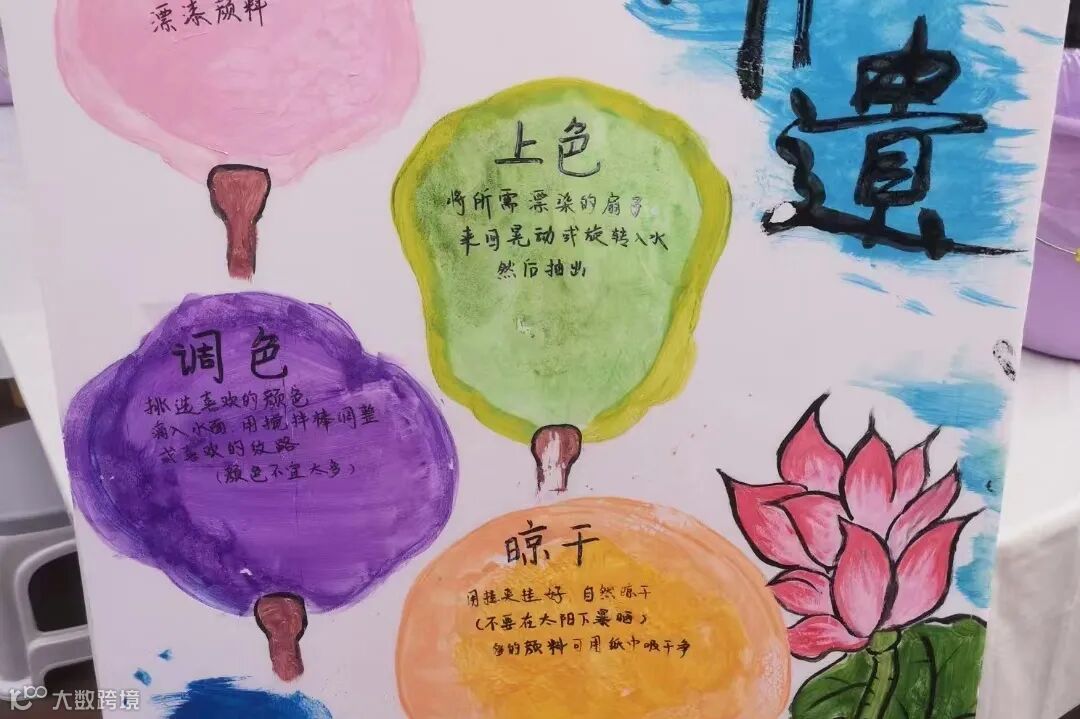 漂漆颜料
非遗
上色
将所需漂染的扇子
来回晃动或旋转入水
然后抽出
调色
挑选喜欢的颜色
滴入水面,用搅拌棒调整
成喜欢的纹路
(颜色不宜太多)
晾干
用挂夹挂好,自然晾干
(不要在太阳下暴晒)
多的颜料可用纸巾吸干多
大数跨境